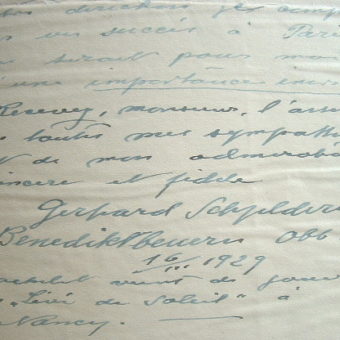 un succès à Pari
serait pour mo
d'une importance
Recevez, monsieur, l'assu
toutes mes sympath
de mon admirat
sincere et fidele
Gerhard Schjelder
Benediktbeuern Obb
16/III 1929
vient de joue
"Levé de Soleil" à
Nancy.